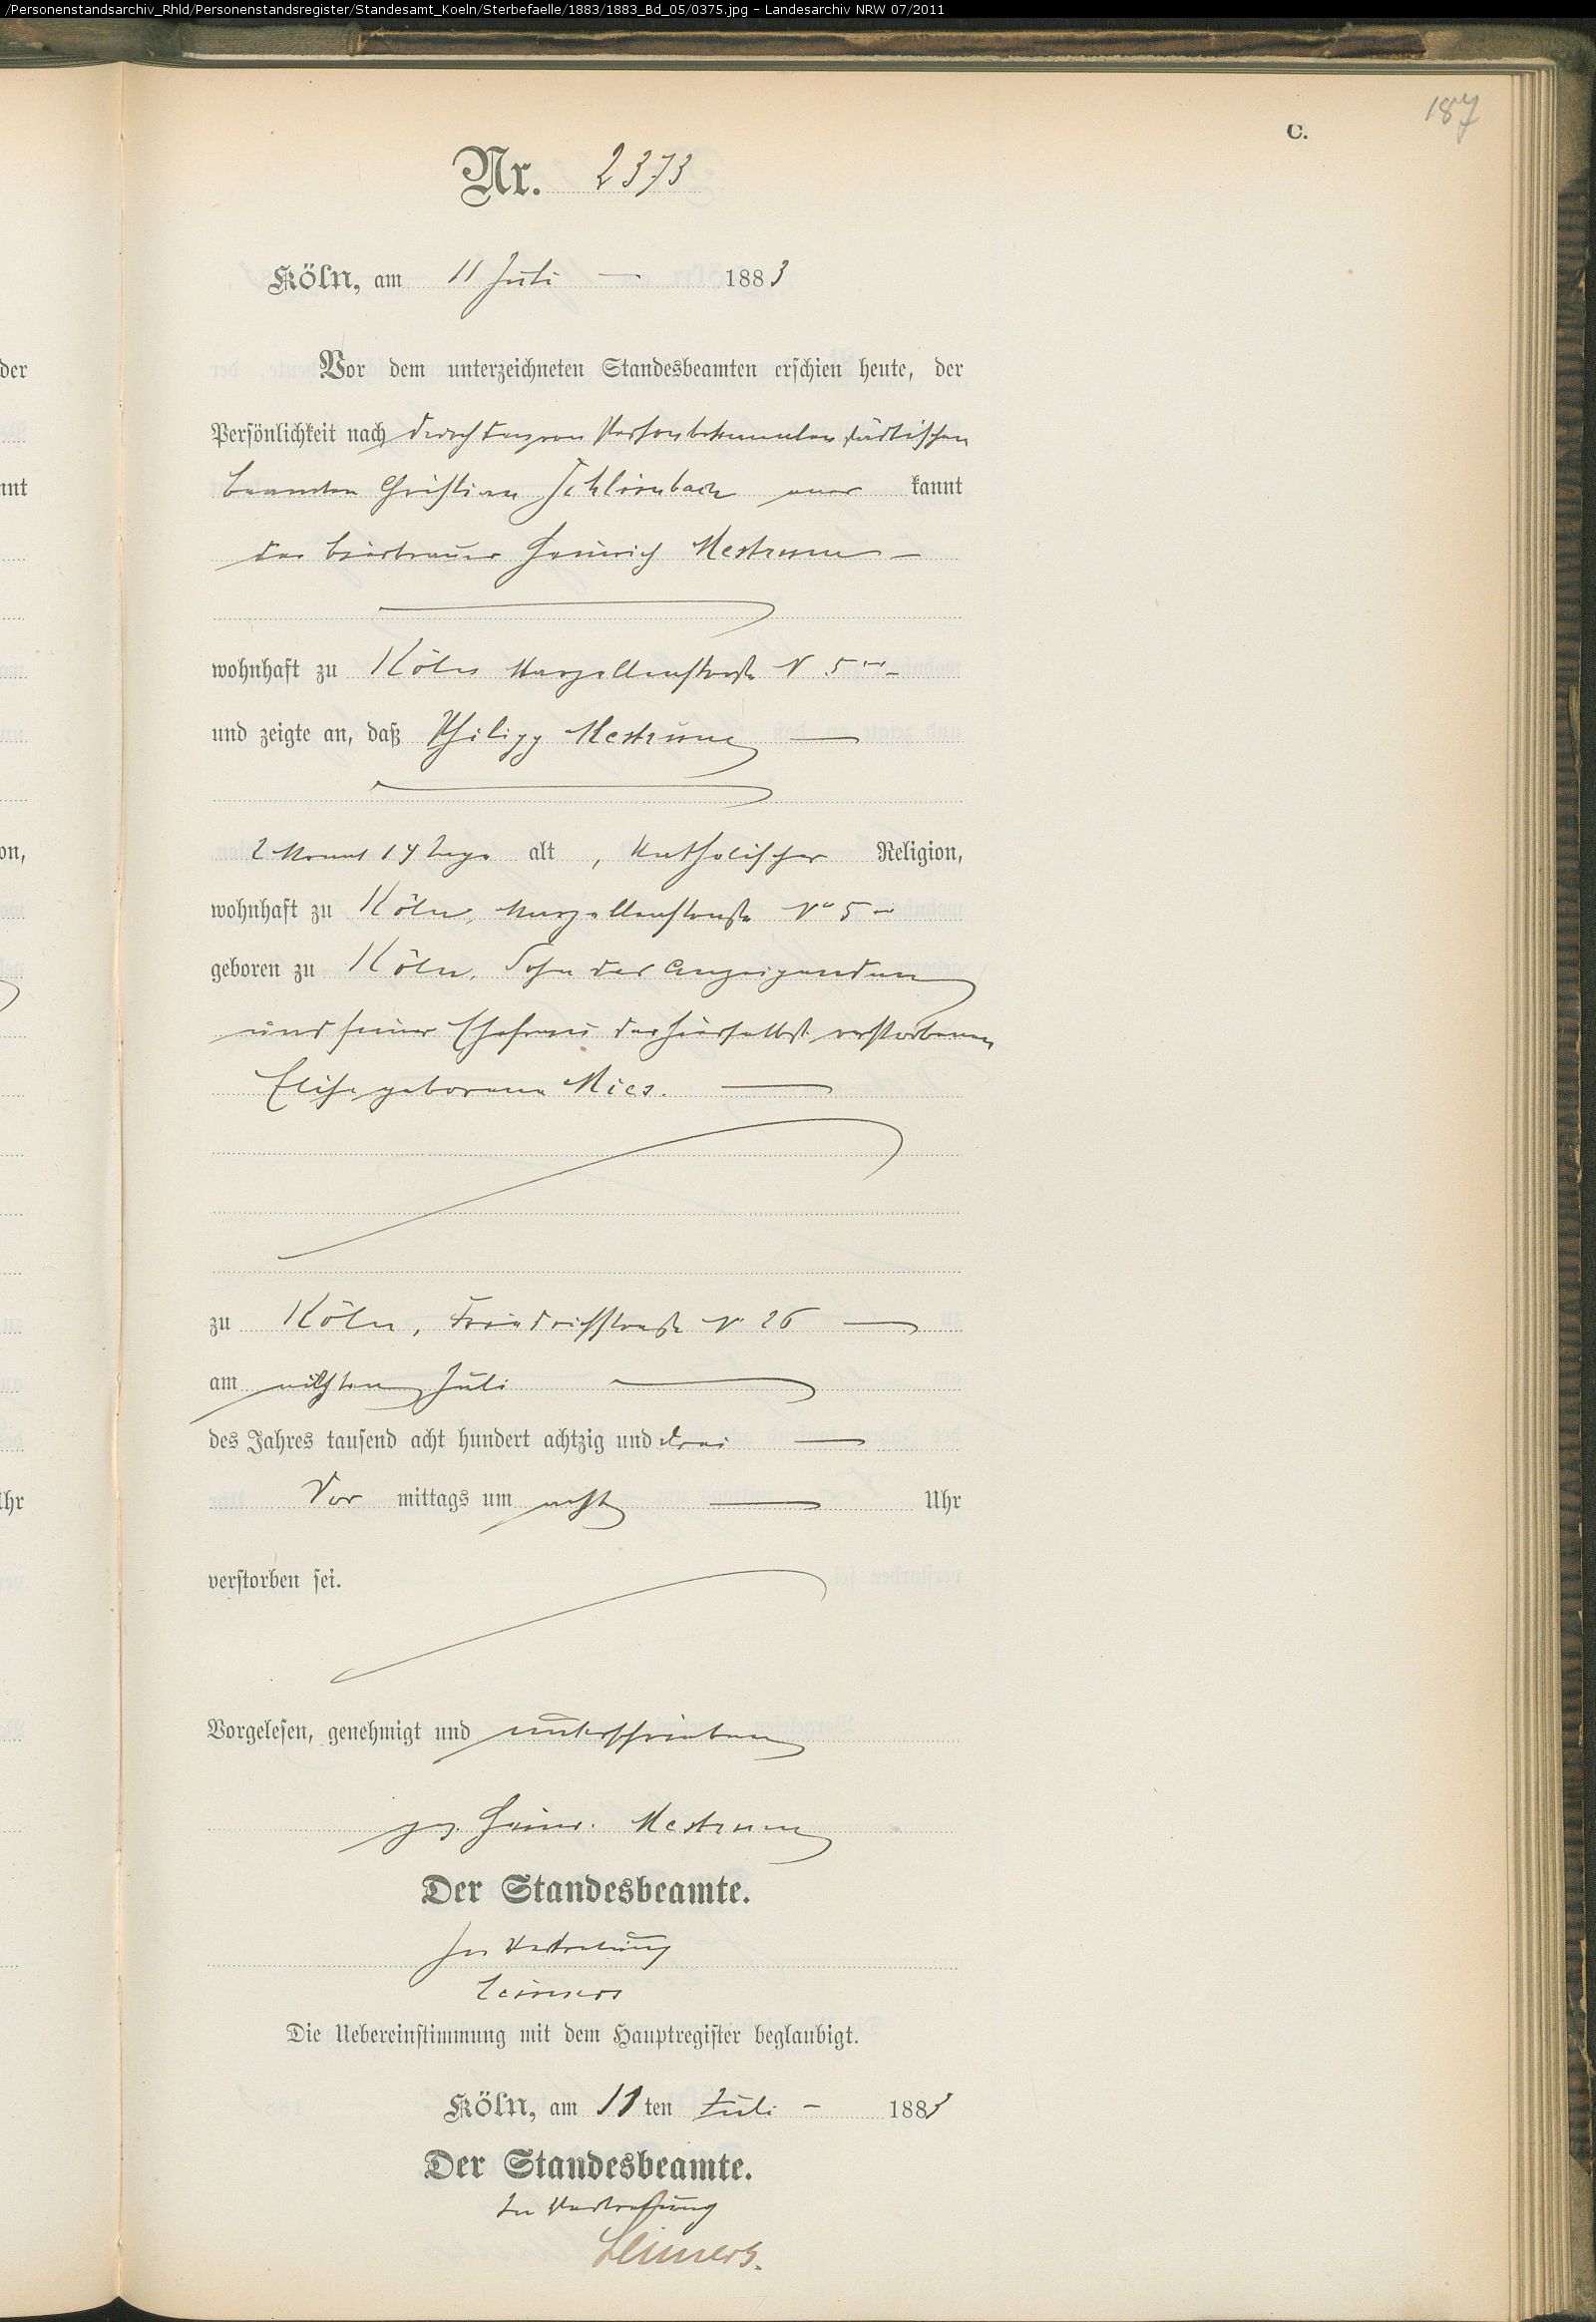 /Personenstandsarchiv_Rhld/Personenstandsregister/Standesamt_Koeln/Sterbefaelle/1883/1883_Bd_05/0375.jpg - Landesarchiv NRW 07/2011
187
C.
Nr. 2373
Köln, am 11 Juli 1883
Vor dem unterzeichneten Standesbeamten erschien heute, der
Persönlichkeit nach durch den von Person bekannten städtischen
Beamten Christian Schlimbach aner kannt
der Bierbrauer Heinrich Mestrum
wohnhaft zu Köln Marzellenstraße N 5
und zeigte an, daß Philipp Mestrum
2 Monat 14 Tage alt, katholischer Religion,
wohnhaft zu Köln, Marzellenstraße No 5
geboren zu Köln, Sohn des Anzeigenden
und seiner Ehefrau der hierselbst verstorbenen
Elise geborene Mies.
zu Köln, Friedrichstraße N 26
am elften Juli
des Jahres tausend acht hundert achtzig und drei
Vor mittags um acht Uhr
verstorben sei.
Vorgelesen, genehmigt und unterschrieben
gez. Heinr. Mestrum
Der Standesbeamte.
In Vertretung
Leimers
Die Uebereinstimmung mit dem Hauptregister beglaubigt.
Köln, am 11ten Juli 1883
Der Standesbeamte.
In Vertretung
Leimers.
der
nnt
on,
Uhr